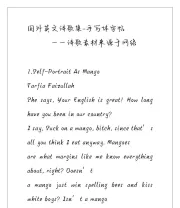 国外英文诗歌集-手写体字帖
——诗歌素材来源于网络
1.Self-Portrait As Mango
Tarfia Faizullah
She says, Your English is great! How long
have you been in our country?
I say, Suck on a mango, bitch, since that's
all you think I eat anyway. Mangoes
are what margins like me know everything
about, right? Doesn't
a mango just win spelling bees and kiss
white boys? Isn't a mango